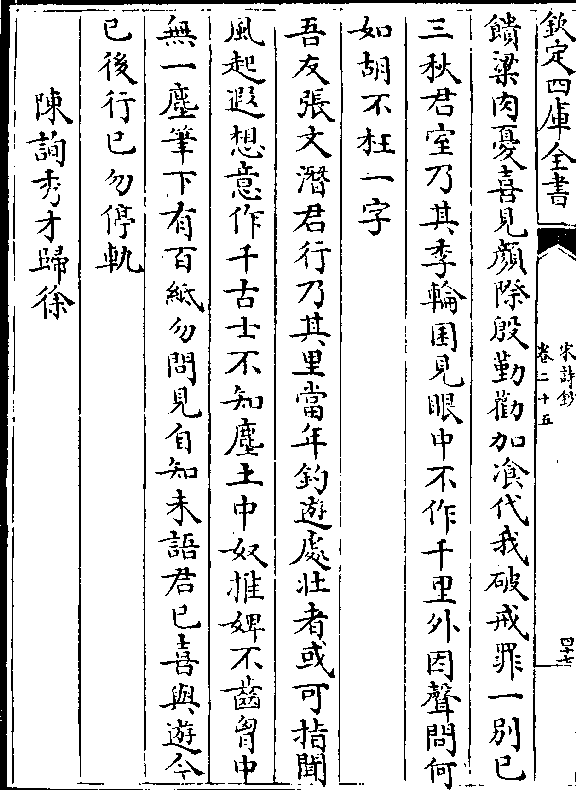 欽定四庫全書
宋詩鈔
卷二十五
四十七
饋粱肉憂喜見顏際殷勤勸加飡代我破戒罪一別已
三秋君室乃其季輪囷見眼中不作千里外因聲問何
如胡不枉一字
吾友張文潛君行乃其里當年釣遊處壯者或可指聞
風起遐想意作千古士不知塵土中奴推婢不齒胷中
無一塵筆下有百紙勿問見自知未語君已喜與遊今
已後行已勿停軌
陳詢秀才歸徐